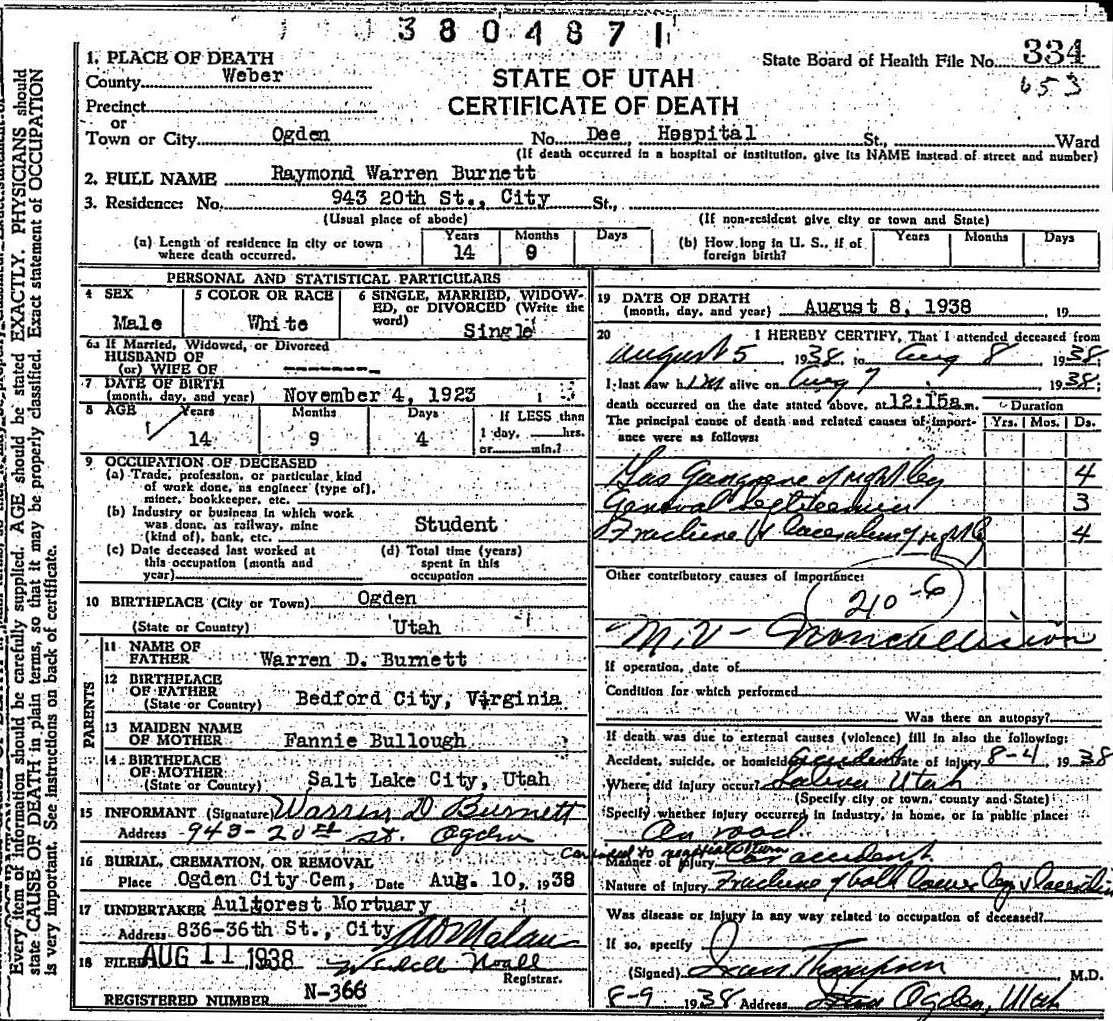 3804871
State Board of Health File No. 334
653
1. PLACE OF DEATH
County Weber
STATE OF UTAH
CERTIFICATE OF DEATH
Precinct
or
Town or City Ogden No. Dee Hospital St., Ward
(If death occurred in a hospital or institution, give its NAME instead of street and number)
2. FULL NAME Raymond Warren Burnett
3. Residence: No. 943 20th St., City St.,
(Usual place of abode) (If non-resident give city or town and State)
(a) Length of residence in city or town where death occurred. Years 14 Months 9 Days
(b) How long in U. S., if of foreign birth? Years Months Days
PERSONAL AND STATISTICAL PARTICULARS
4 SEX Male
5 COLOR OR RACE White
6 SINGLE, MARRIED, WIDOWED, or DIVORCED (Write the word) Single
6a If Married, Widowed, or Divorced
HUSBAND OF
(or) WIFE OF -------
7 DATE OF BIRTH
(month, day, and year) November 4, 1923
8 AGE Years 14 Months 9 Days 4 If LESS than 1 day, hrs. or min.?
9 OCCUPATION OF DECEASED
(a) Trade, profession, or particular kind
of work done, as engineer (type of),
miner, bookkeeper, etc.
(b) Industry or business in which work
was done, as railway, mine
(kind of), bank, etc. Student
(c) Date deceased last worked at
this occupation (month and
year)
(d) Total time (years)
spent in this
occupation
10 BIRTHPLACE (City or Town) Ogden
(State or Country) Utah
PARENTS
11 NAME OF
FATHER Warren D. Burnett
12 BIRTHPLACE
OF FATHER
(State or Country) Bedford City, Virginia
13 MAIDEN NAME
OF MOTHER Fannie Bullough
14 BIRTHPLACE
OF MOTHER
(State or Country) Salt Lake City, Utah
15 INFORMANT (Signature) Warren D Burnett
Address 943-20th St. Ogden
16 BURIAL, CREMATION, OR REMOVAL
Place Ogden City Cem, Date Aug. 10, 1938
17 UNDERTAKER Aultorest Mortuary
Address 836-36th St., City
18 FILED AUG 11 1938 Wendell Noall
Registrar.
REGISTERED NUMBER N-366
19 DATE OF DEATH
(month, day, and year) August 8, 1938 19
20 I HEREBY CERTIFY, That I attended deceased from
August 5 1938, to Aug 8 1938
I last saw him alive on Aug 7 1938;
death occurred on the date stated above, at 12:15a m. Duration
The principal cause of death and related causes of importance were as follows: Yrs. Mos. Ds.
Gas Gangrene of right leg 4
General Septicemia 3
Fracture & laceration of right leg 4
Other contributory causes of importance:
210-6
M.V- Noncollision
If operation, date of
Condition for which performed
Was there an autopsy?
If death was due to external causes (violence) fill in also the following:
Accident, suicide, or homicide accident Date of injury 8-4 1938
Where did injury occur? Salina Utah
(Specify city or town, county and State)
Specify whether injury occurred in industry, in home, or in public place:
On road
Manner of Injury Car accident
Nature of Injury Fracture of both lower leg & laceration
Was disease or injury in any way related to occupation of deceased?
If so, specify
(Signed) Ivan Thompson M.D.
8-9 1938 Address Ogden, Utah
Every item of information should be carefully supplied. AGE should be stated EXACTLY. PHYSICIANS should
state CAUSE OF DEATH in plain terms, so that it may be properly classified. Exact statement of OCCUPATION
is very important. See instructions on back of certificate.